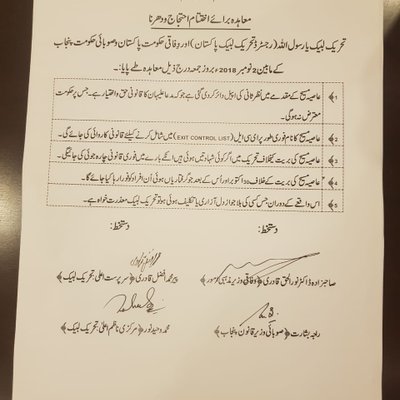 معاہدہ برائے اختتام احتجاج و دھرنا
تحریک لبیک یا رسول اللہ (رجسٹرڈ تحریک لبیک پاکستان) اور وفاقی حکومت پاکستان و صوبائی حکومت پنجاب
کے مابین 2 نومبر 2018ء بروز جمعہ درج ذیل معاہدہ طے پایا:-
﴿1﴾ عاصیہ مسیح کے مقدمے میں نظر ثانی کی اپیل دائر کر دی گئی ہے جو کہ مدعا علیہان کا قانونی حق و اختیار ہے۔ جس پر حکومت
معترض نہ ہوگی۔
﴿2﴾ عاصیہ مسیح کا نام فوری طور پر ای سی ایل (EXIT CONTROL LIST) میں شامل کرنے کیلئے قانونی کاروائی کی جائے گی۔
﴿3﴾ عاصیہ مسیح کی بریت کے خلاف تحریک میں اگر کوئی شہادتیں ہوئی ہیں انکے بارے میں فوری قانونی چارہ جوئی کی جائیگی۔
﴿4﴾ عاصیہ مسیح کی بریت کے خلاف 30 اکتوبر اور اس کے بعد جو گرفتاریاں ہوئی ان افراد کو فوراً رہا کیا جائے گا۔
﴿5﴾ اس واقعے کے دوران جس کسی کی بلا جواز دل آزاری یا تکلیف ہوئی ہو تو تحریک لبیک معذرت خواہ ہے۔
دستخط:
دستخط:
صاحبزادہ ڈاکٹر نور الحق قادری ﴿وفاقی وزیر مذہبی امور﴾
پیر محمد افضل قادری ﴿سرپرست اعلیٰ، تحریک لبیک﴾
راجہ بشارت ﴿صوبائی وزیر قانون پنجاب﴾
محمد وحید نور ﴿مرکزی ناظم اعلیٰ، تحریک لبیک﴾